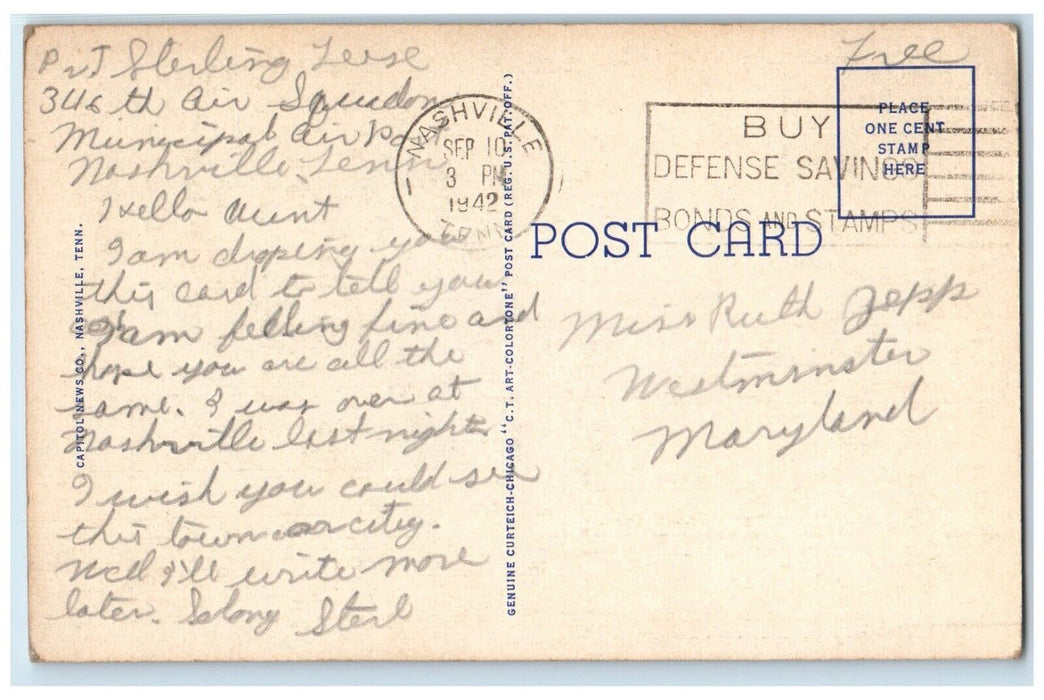 Pvt Sterling Leese
346th Air Squadon
Municipal Air Port
Nashville, Tenn
Hello Aunt
I am dropping you
this card to tell you
I am felling fine and
hope you are all the
same. I was over at
Nashville last night
I wish you could see
this town or city.
Well I'll write more
later. Solong Sterl
CAPITOL NEWS CO., NASHVILLE, TENN.
GENUINE CURTEICH-CHICAGO "C.T. ART-COLORTONE" POST CARD (REG. U.S. PAT. OFF.)
NASHVILLE
SEP 10
3 PM
1942
TENN
BUY
DEFENSE SAVINGS
BONDS AND STAMPS
Free
PLACE
ONE CENT
STAMP
HERE
POST CARD
Miss Ruth Zepp
Westminster
Maryland